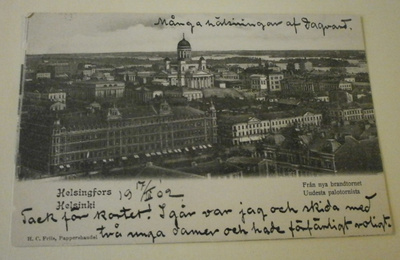 Många hälsningar af Dagvard.
Helsingfors
Helsinki
Från nya brandtornet
Uudesta palotornista
19 17/II 02
Tack för kortet! I går var jag och skida med
två unga damer och hade förfärligt roligt.
H. C. Friis, Pappershandel